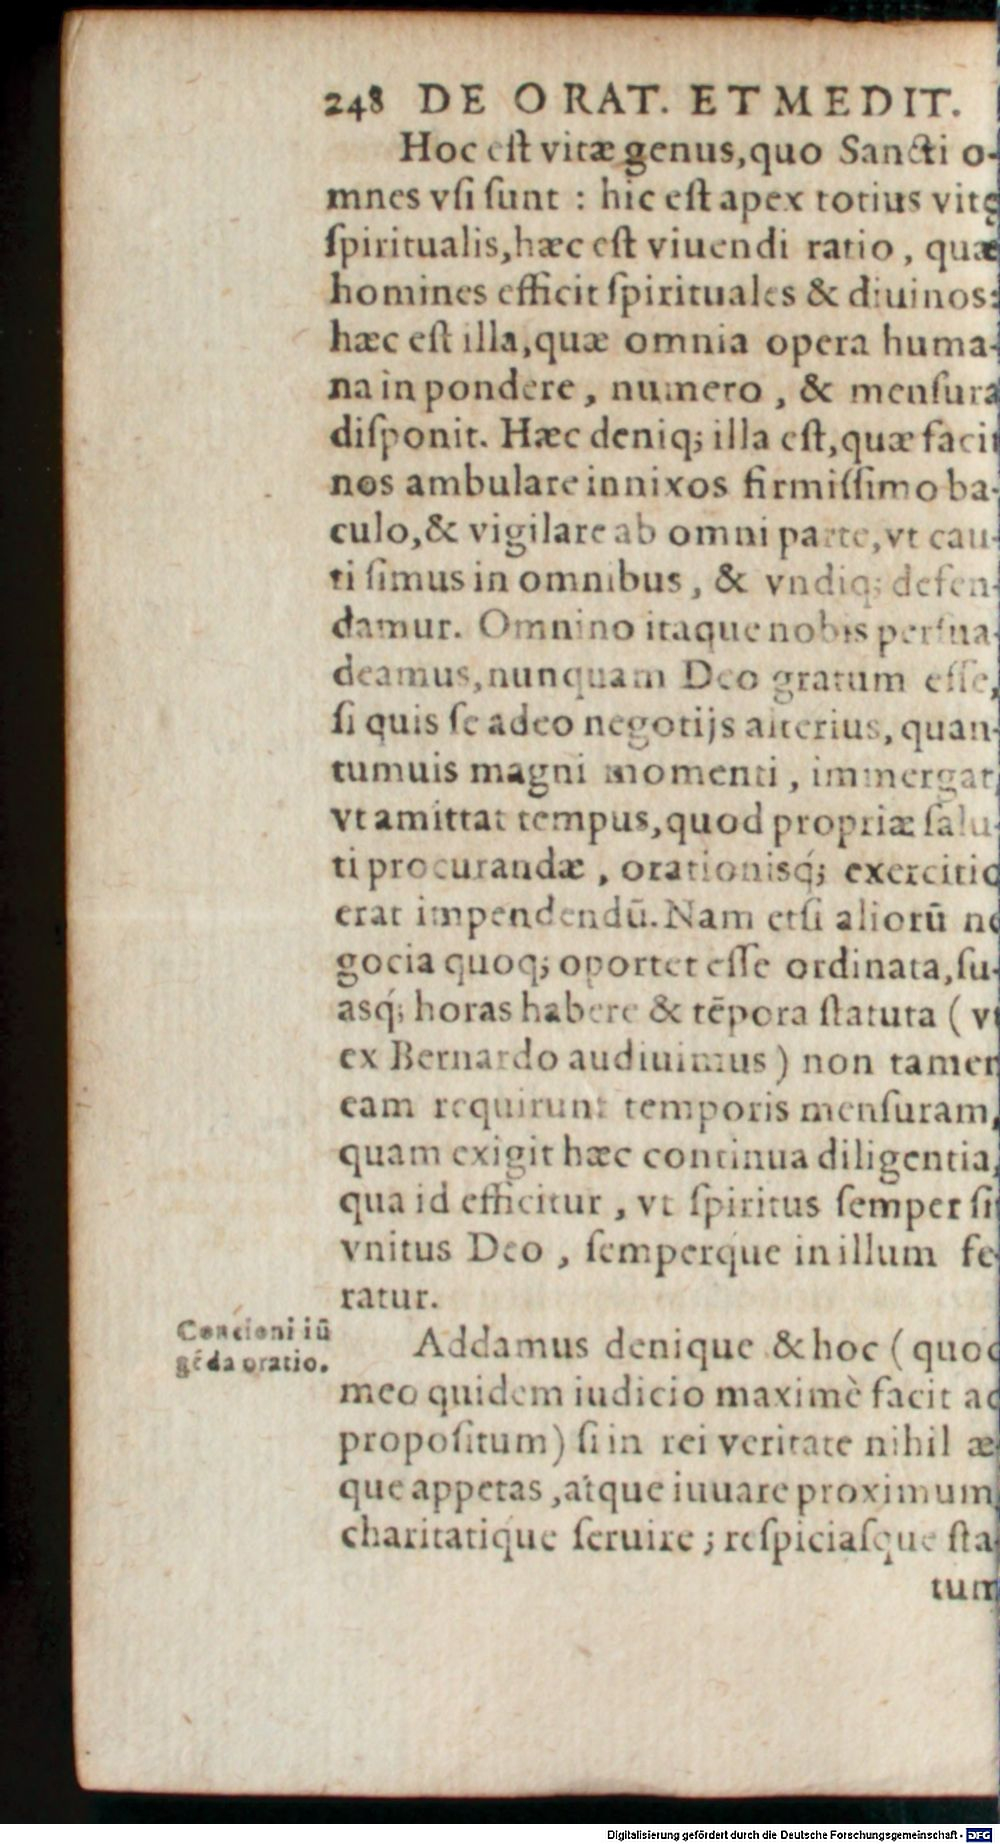 248 DE ORAT. ET MEDIT.
Hoc est vitæ genus, quo Sancti o-
mnes vsi sunt : hic est apex totius vitę
spiritualis, hæc est viuendi ratio, quæ
homines efficit spirituales & diuinos:
hæc est illa, quæ omnia opera huma-
na in pondere, numero, & mensura
disponit. Hæc deniq; illa est, quæ facit
nos ambulare innixos firmissimo ba-
culo, & vigilare ab omni parte, vt cau-
ti simus in omnibus, & vndiq; defen-
damur. Omnino itaque nobis persua-
deamus, nunquam Deo gratum esse,
si quis se adeo negotijs alterius, quan-
tumuis magni momenti, immergat,
vt amittat tempus, quod propriæ salu-
ti procurandæ, orationisq́; exercitio
erat impendendū. Nam etsi aliorū ne
gocia quoq; oportet esse ordinata, su-
asq́; horas habere & tēpora statuta ( vt
ex Bernardo audiuimus ) non tamen
eam requirunt temporis mensuram,
quam exigit hæc continua diligentia,
qua id efficitur, vt spiritus semper sit
vnitus Deo, semperque in illum fe-
ratur.
Concioni iū
gēda oratio.
Addamus denique & hoc ( quod
meo quidem iudicio maximè facit ad
propositum ) si in rei veritate nihil æ-
que appetas, atque iuuare proximum,
charitatique seruire ; respiciasque sta-
tum
Digitalisierung gefördert durch die Deutsche Forschungsgemeinschaft - DFG